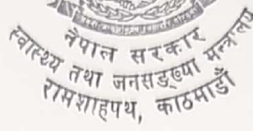 नेपाल सरकार
स्वास्थ्य तथा जनसङ्ख्या मन्त्रालय
रामशाहपथ, काठमाडौँ